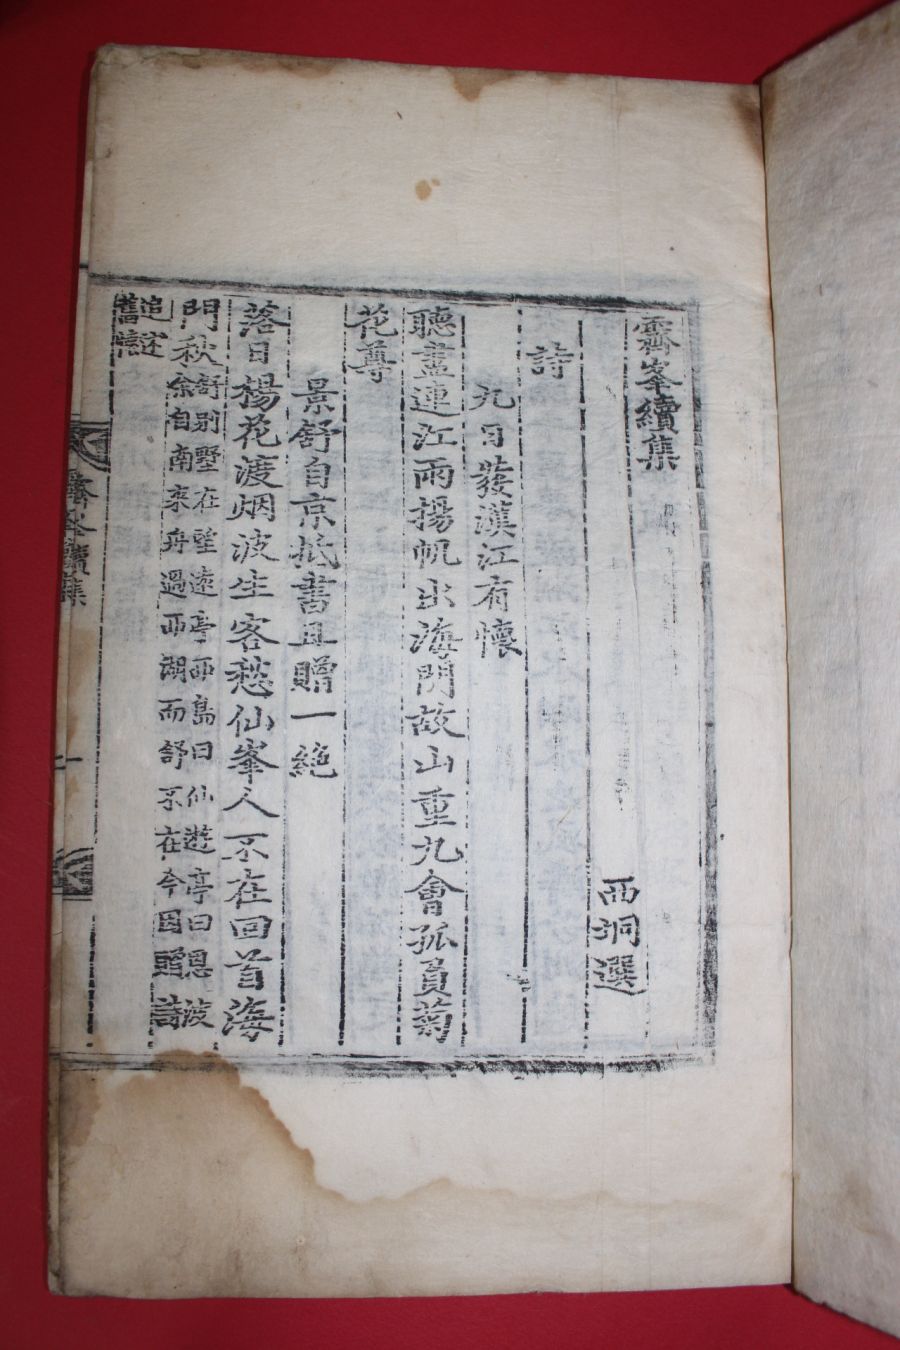 霽峯續集
西洞選
詩
九日發漢江有懷
聽盡連江雨揚帆出海門故山重九會孤負菊
花尊
景舒自京抵書且贈一絶
落日楊花渡烟波生客愁仙峯人不在回首海
門秋
舒別墅在望遠亭西島曰仙遊亭曰恩波
余自南來舟過西湖而舒不在今因贈詩
追述
舊懷
霽峯續集
一